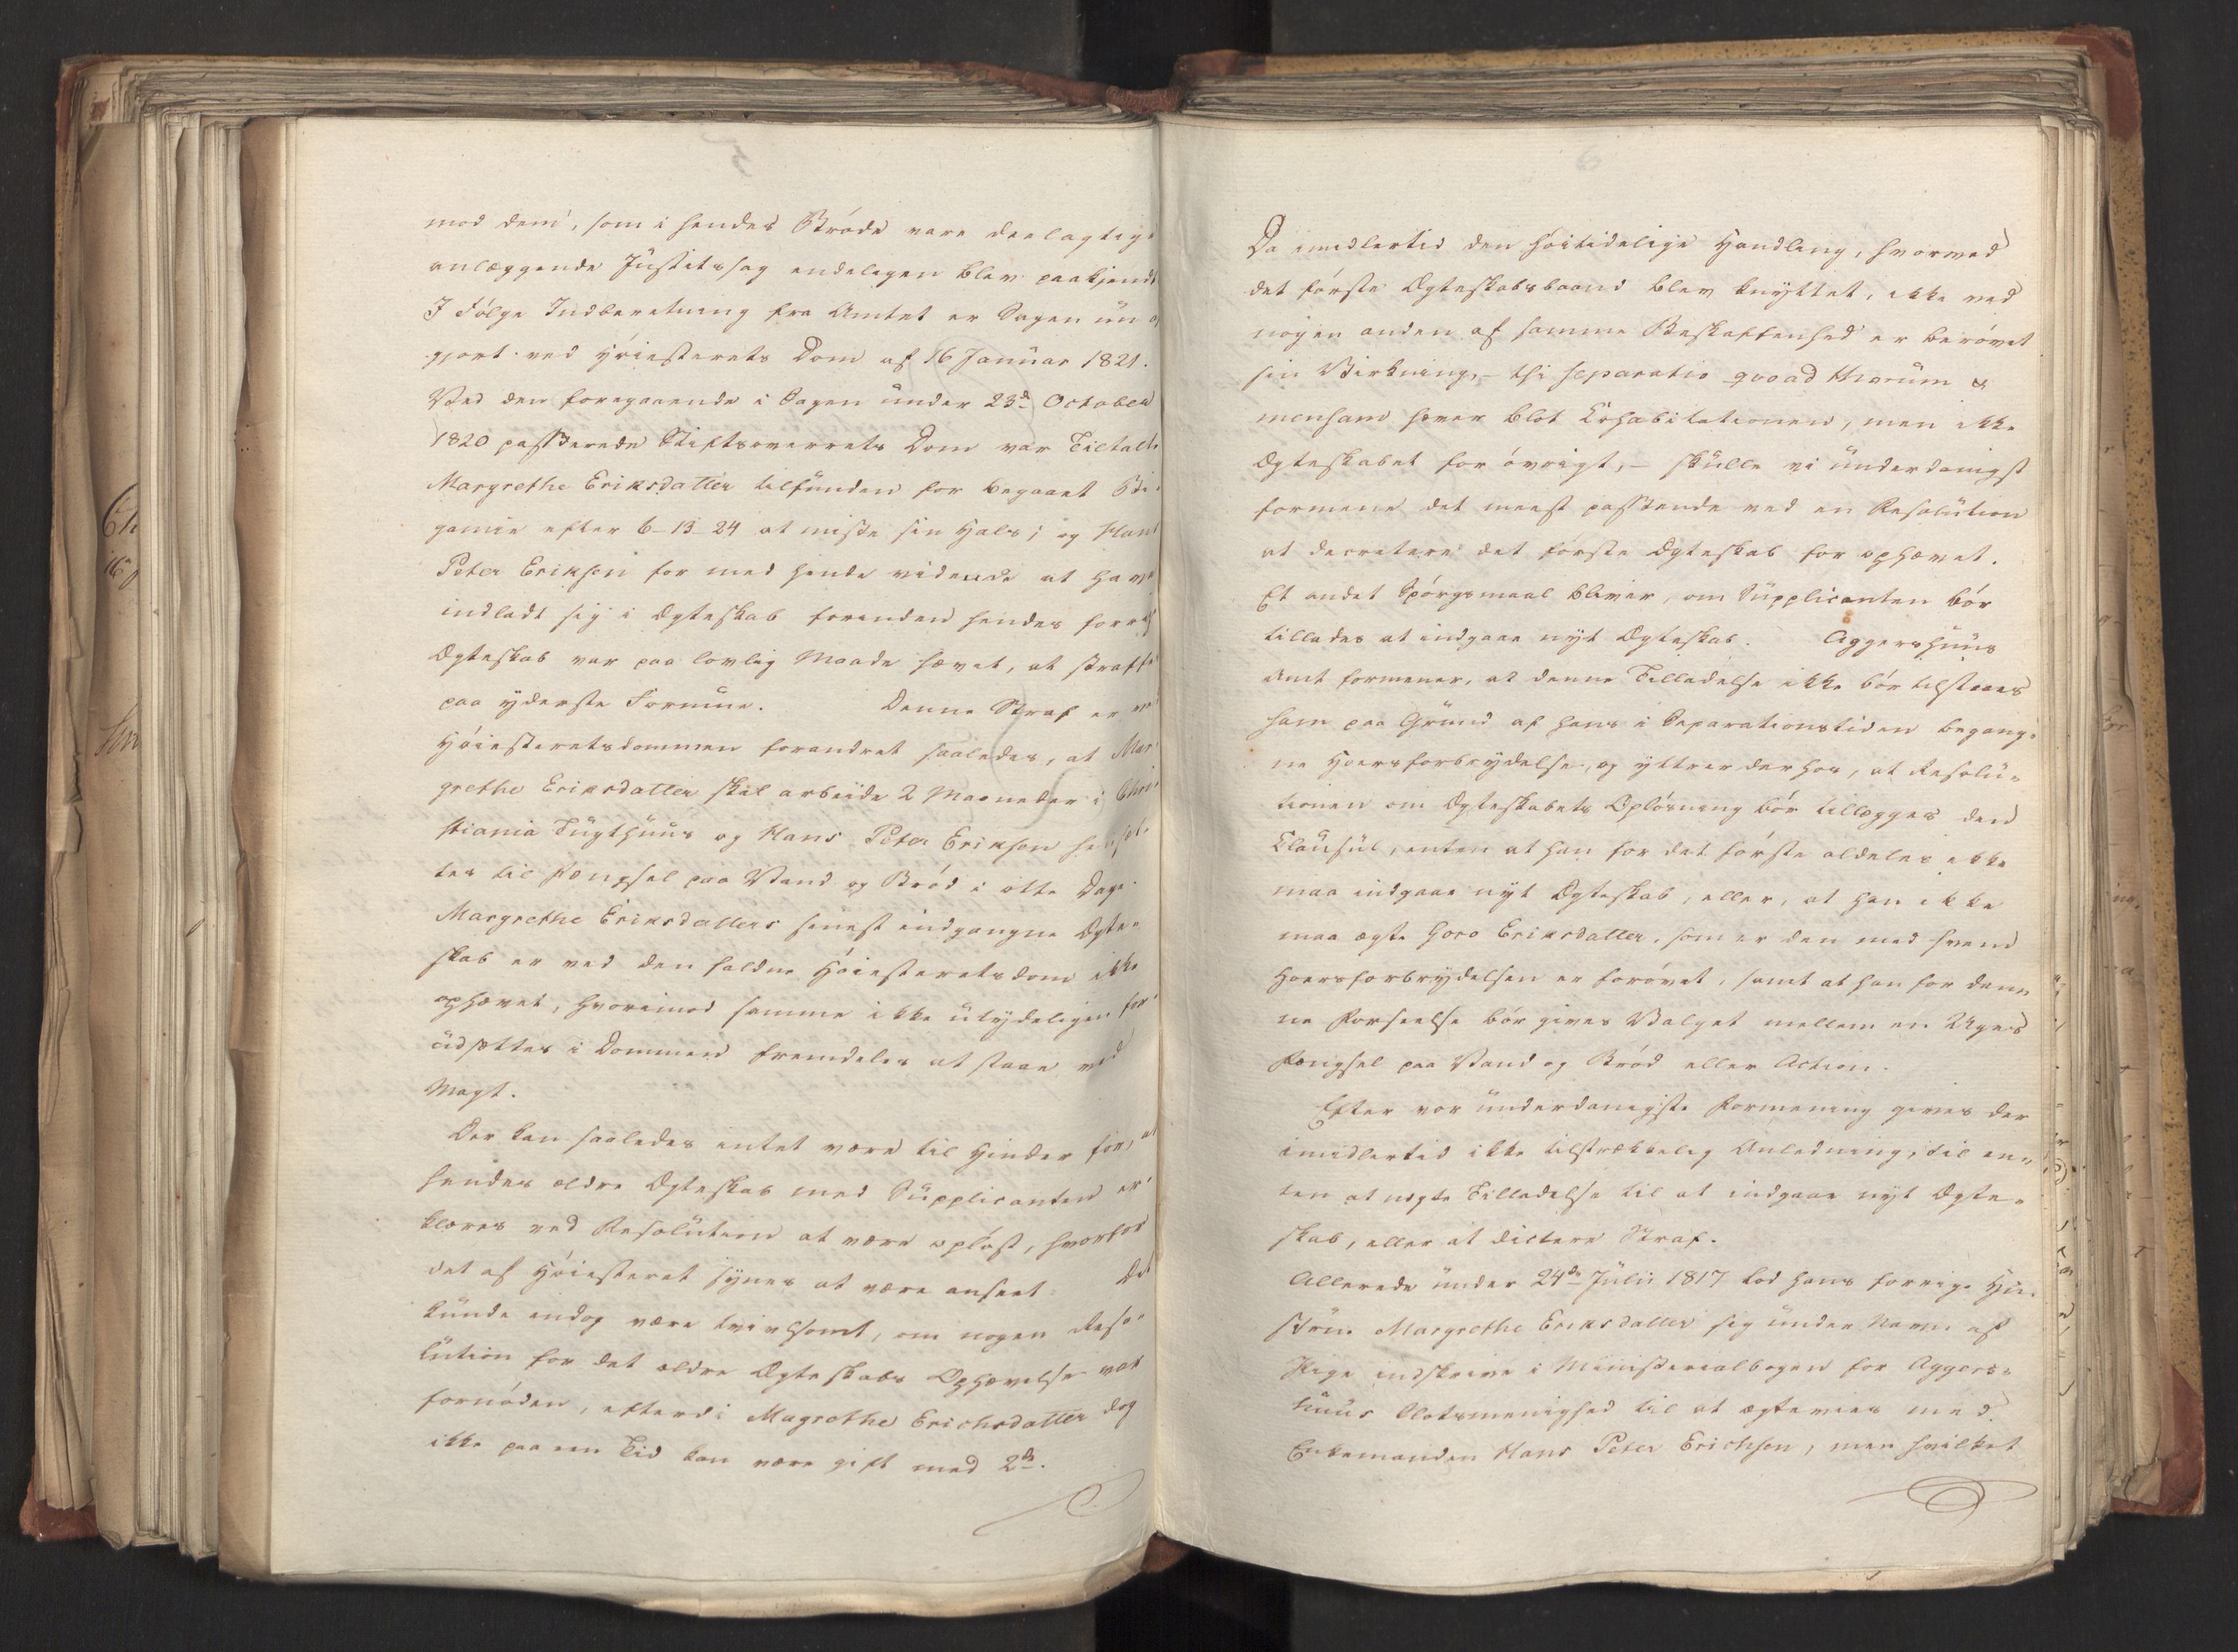 mod dem, som i hendes Brøde vare deelagtige
anlæggende Justitssag endeligen blev paakjendt
I Følge Indberetning fra Amtet er Sagen nu af
gjort ved Høiesterets Dom af 16 Januar 1821.
Ved den foregaaende i Sagen under 23d October
1820 passerede Stiftsoverrets Dom var Tiltalte
Margrethe Eriksdatter tilfunden for begaaet Bi-
gamie efter 6-13-24 at miste sin Hals; og Hans
Peter Eriksen for med hende vidende at have
indladt sig i Ægteskab forinden hendes forrige
Ægteskab var paa lovlig Maade hævet, at straffes
paa yderste Formue. Denne Straf er ved
Høiesteretsdommen forandret saaledes, at Mar-
grethe Eriksdatter skal arbeide 2 Maaneder i Chri-
stiania Tugthuus og Hans Peter Eriksen hensæt-
tes til Fængsel paa Vand og Brød i otte Dage.
Margrethe Eriksdatters senest indgangne Ægte-
skab er ved den faldne Høiesteretsdom ikke
ophævet, hvorimod samme ikke utydeligen for-
udsættes i Dommen fremdeles at staae ved
Magt.
Der kan saaledes intet være til Hinder for, at
hendes ældre Ægteskab med Supplicanten er-
klæres ved Resolution at være opløst, hvorfor
det af Høiesteret synes at være anseet. Det
kunde endog være tvivlsomt, om nogen Reso-
lution for det ældre Ægteskabs Ophævelse var
fornøden, efterdi Magrethe Erichsdatter dog
ikke paa een Tid kan være gift med 2de.
Da imidlertid den høitidelige Handling, hvorved
det første Ægteskabsbaand blev knyttet, ikke ved
nogen anden af samme Beskaffenhed er berøvet
sin Virkning, - thi separatio qvoad thorum &
mensam hæver blot Cohabitationen, men ikke
Ægteskabet for øvrigt, - skulle vi underdanigst
formene det meest passende ved en Resolution
at decretere det første Ægteskab for ophævet.
Et andet Spørgsmaal bliver, om Supplicanten bør
tillades at indgaae nyt Ægteskab. Aggershuus
Amt formener, at denne Tilladelse ikke bør tilstaaes
ham paa Grund af hans i Separationstiden begang-
ne Hoersforbrydelse, og yttrer derhos, at Resolu-
tionen om Ægteskabets Opløsning bør tillægges den
Clausul, enten at han for det første aldeles ikke
maa indgaae nyt Ægteskab, eller, at han ikke
maa ægte Goro Eriksdatter, som er den med hvem
Hoersforbrydelsen er forøvet, samt at han for den-
ne Forseelse bør gives Valget mellem en Uges
Fængsel paa Vand og Brød eller Action.
Efter vor underdanigste Formening gives der
imidlertid ikke tilstrækkelig Anledning, til en-
ten at nægte Tilladelse til at indgaae nyt Ægte-
skab, eller at dictere Straf.
Allerede under 24de Julii 1817 lod hans forrige Hu-
stru Margrethe Eriksdatter sig under Navn af
Pige indskrive i Ministerialbogen for Aggers-
huus Slotsmenighed til at ægtevies med
Enkemanden Hans Peter Erichsen, men hvilket